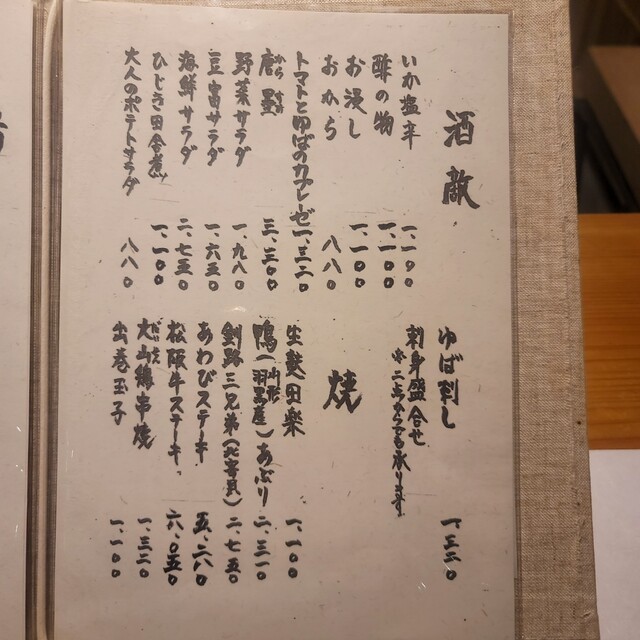 酒肴
いか塩辛 一、一〇〇
酢の物 一、一〇〇
お浸し 一、一〇〇
おから 八八〇
トマトとゆばのカプレーゼ 一、三二〇
唐墨 からすみ 三、三〇〇
野菜サラダ 一、九八〇
豆富サラダ 一、六五〇
海鮮サラダ 二、七五〇
ひじき田舎煮 一、一〇〇
大人のポテトサラダ 八八〇
ゆば刺し 一、三二〇
刺身盛合せ
※二点からでも承ります
焼
生麩田楽 一、一〇〇
鴨(山形羽黒産)あぶり 二、三一〇
釧路三兄弟(北寄貝) 二、七五〇
あわびステーキ 五、二八〇
松阪牛ステーキ 六、〇五〇
大山鶏串焼 だいせん 一、三二〇
出巻玉子 一、一〇〇